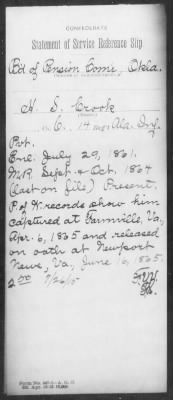 CONFEDERATE
Statement of Service Reference Slip
Bd of Pension Com., Okla.
H. S. Crook
C. 14 Ala. Inf.
Pvt.
Enl. July 29, 1861.
M.R. Sept. & Oct. 1864
(last on file) Present.
P. of W. records show him
captured at Farmville, Va.
Apr. 6, 1865 and released
on oath at Newport
News, Va., June 16, 1865.